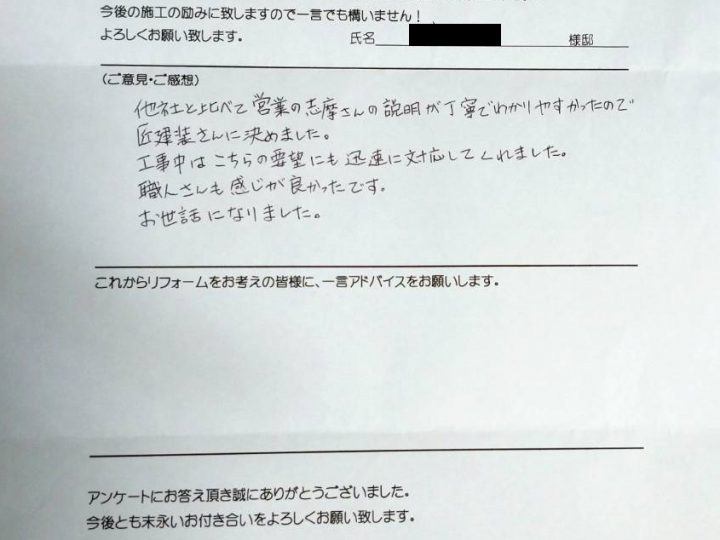 今後の施工の励みに致しますので一言でも構いません！
よろしくお願い致します。 氏名 様邸
(ご意見・ご感想)
他社と比べて営業の志摩さんの説明が丁寧でわかりやすかったので
匠建装さんに決めました。
工事中はこちらの要望にも迅速に対応してくれました。
職人さんも感じが良かったです。
お世話になりました。
これからリフォームをお考えの皆様に、一言アドバイスをお願いします。
アンケートにお答え頂き誠にありがとうございました。
今後とも末永いお付き合いをよろしくお願い致します。